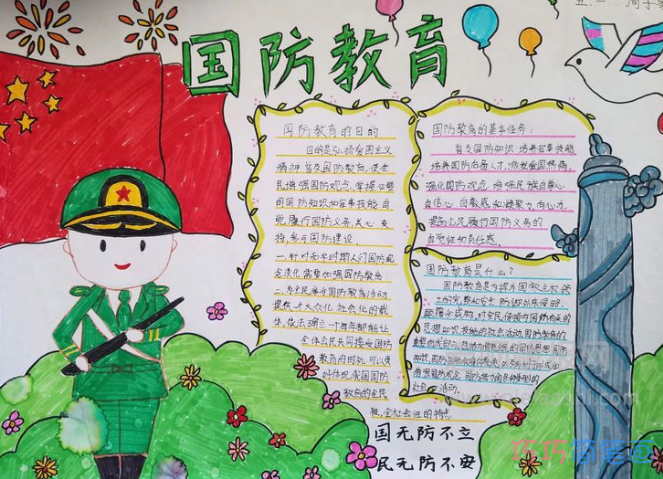 五.一
国防教育
国防教育的目的
目的是弘扬爱国主义
精神,普及国防教育,使全
民增强国防观念,掌握必要
国防知识和军事技能,自
觉履行国防义务,关心、支
持、参与国防建设。
一、针对和平时期人们国防观
念淡化,需要加强国防教育
二、为全民参与国防教育活动
提供
大众化、社会化的载
体,依法确立一个每年都能让
全体公民共同接受国防
教育的时机,可以更
好体现我国国防
教育的全民
性,全社会性的特点
国防教育的基本任务:
普及国防知识,培养军事技能
培养国防后备人才,激发爱国热情,
强化国防观念,增强民族自尊心
自信心、自豪感和凝聚力、向心力,
提高公民履行国防义务的
自觉性和责任感。
国防教育是什么?
国防教育是为捍卫国家主权、领
土的完整和安全,防御外来侵略、
颠覆和威胁,对全民传授与国防有关的
思想、知识、技能的社会活动,国防教育的
社会活动。
国无防不立
民无防不安
巧巧简笔画